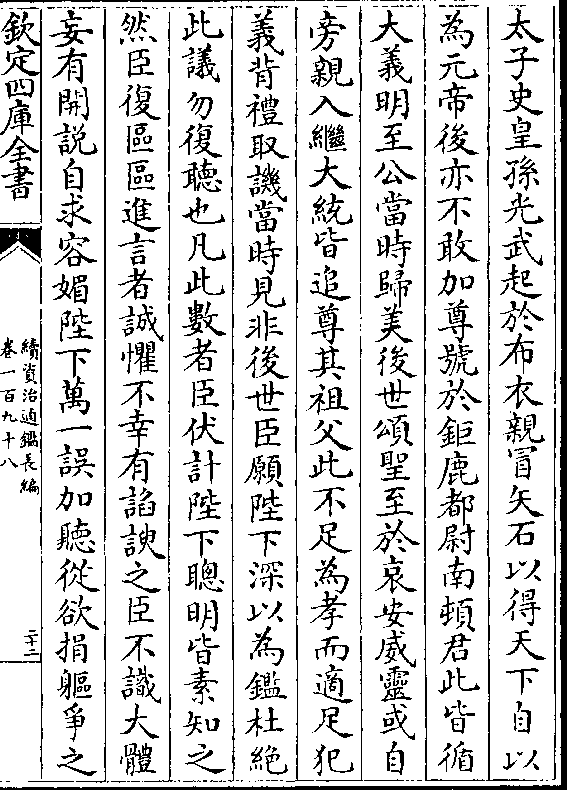 太子史皇孫光武起於布衣親冒矢石以得天下自以
為元帝後亦不敢加尊號於鉅鹿都尉南頓君此皆循
大義明至公當時歸美後世頌聖至於哀安威靈或自
旁親入繼大統皆追尊其祖父此不足為孝而適足犯
義背禮取譏當時見非後世臣願陛下深以為鑑杜絶
此議勿復聽也凡此數者臣伏計陛下聰明皆素知之
然臣復區區進言者誠懼不幸有諂諛之臣不識大體
妄有開説自求容媚陛下萬一誤加聽從欲捐軀爭之
欽定四庫全書
續資治通鑑長編
卷一百九十八
二十二